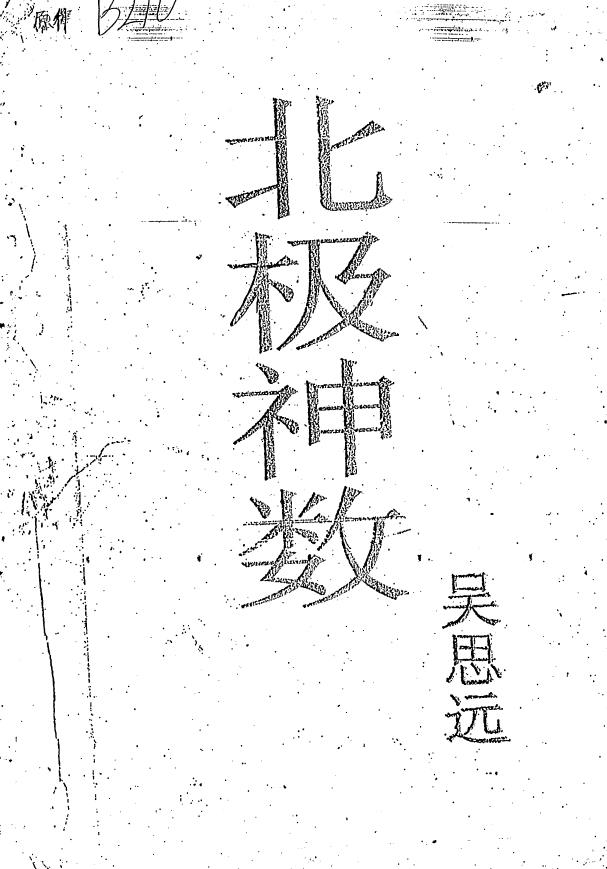 原件
北极神数
吴思远